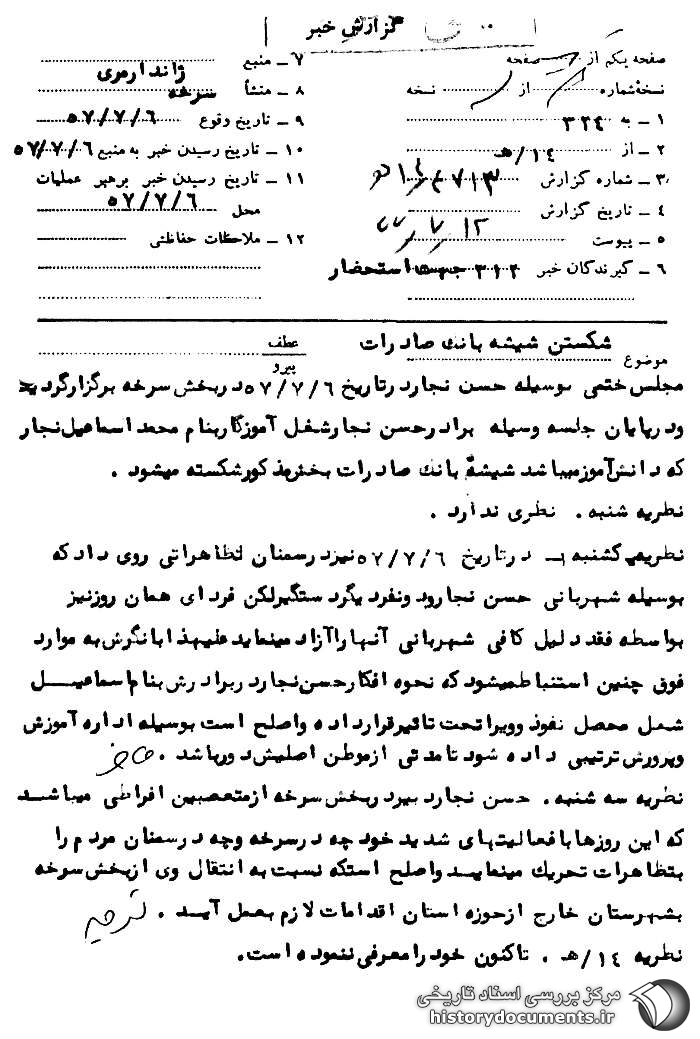 گزارش خبر
صفحه یکم از صفحه
نسخهٔ شماره از نسخه
۱ ـ به ۳۲۴
۲ ـ از ۱۴/هـ
۳ ـ شماره گزارش
۴ ـ تاریخ گزارش
۵ ـ پیوست
۶ ـ گیرندگان خبر ۳۱۲ جهت استحضار
۷ ـ منبع ژاندارمری
۸ ـ منشأ سرخه
۹ ـ تاریخ وقوع ۵۷/۷/۶
۱۰ ـ تاریخ رسیدن خبر به منبع ۵۷/۷/۶
۱۱ ـ تاریخ رسیدن خبر برهبر عملیات
محل ۵۷/۷/۶
۱۲ ـ ملاحظات حفاظتی
موضوع شکستن شیشه بانک صادرات
عطف
پیرو
مجلس ختمی بوسیله حسن نجار درتاریخ ۵۷/۷/۶ در بخش سرخه برگزار گردید
ودرپایان جلسه وسیله برادرحسن نجارشغل آموزگار بنام محمد اسماعیل نجار
که دانش آموز میباشد شیشهٔ بانک صادرات بخش مذکور شکسته میشود .
نظریه شنبه . نظری ندارد .
نظریه یکشنبه ۱ـ درتاریخ ۵۷/۷/۶ نیز درسمنان تظاهراتی روی داد که
بوسیله شهربانی حسن نجار ودونفر دیگر دستگیر لکن فردای همان روز نیز
بواسطه فقد دلیل کافی شهربانی آنها را آزاد مینماید علیهذا بانگرش به موارد
فوق چنین استنباط میشود که نحوه افکار حسن نجار در برادرش بنام اسماعیل
شغل محصل نفوذ وویرا تحت تاثیر قرارداده واصلح است بوسیله اداره آموزش
وپرورش ترتیبی داده شود تا مدتی از موطن اصلیش دور باشد .
نظریه سه شنبه . حسن نجار دبیر دربخش سرخه از متعصبین افراطی میباشد
که این روزها با فعالیتهای شدید خود چه درسرخه وچه درسمنان مردم را
بتظاهرات تحریک مینماید واصلح استکه نسبت به انتقال وی از بخش سرخه
بشهرستان خارج از حوزه استان اقدامات لازم بعمل آید .
نظریه ۱۴/هـ . تاکنون خود را معرفی ننموده است.
مرکز بررسی اسناد تاریخی
historydocuments.ir